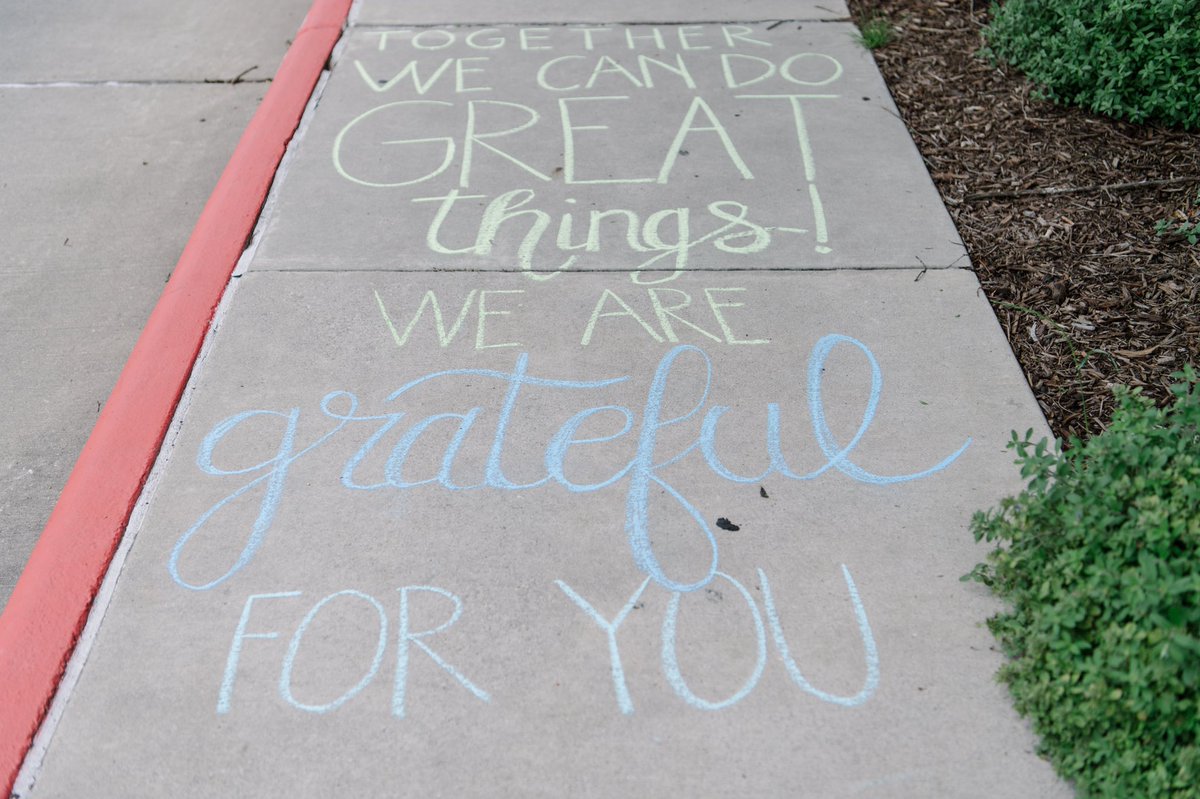 TOGETHER
WE CAN DO
GREAT
things!
WE ARE
grateful
FOR YOU